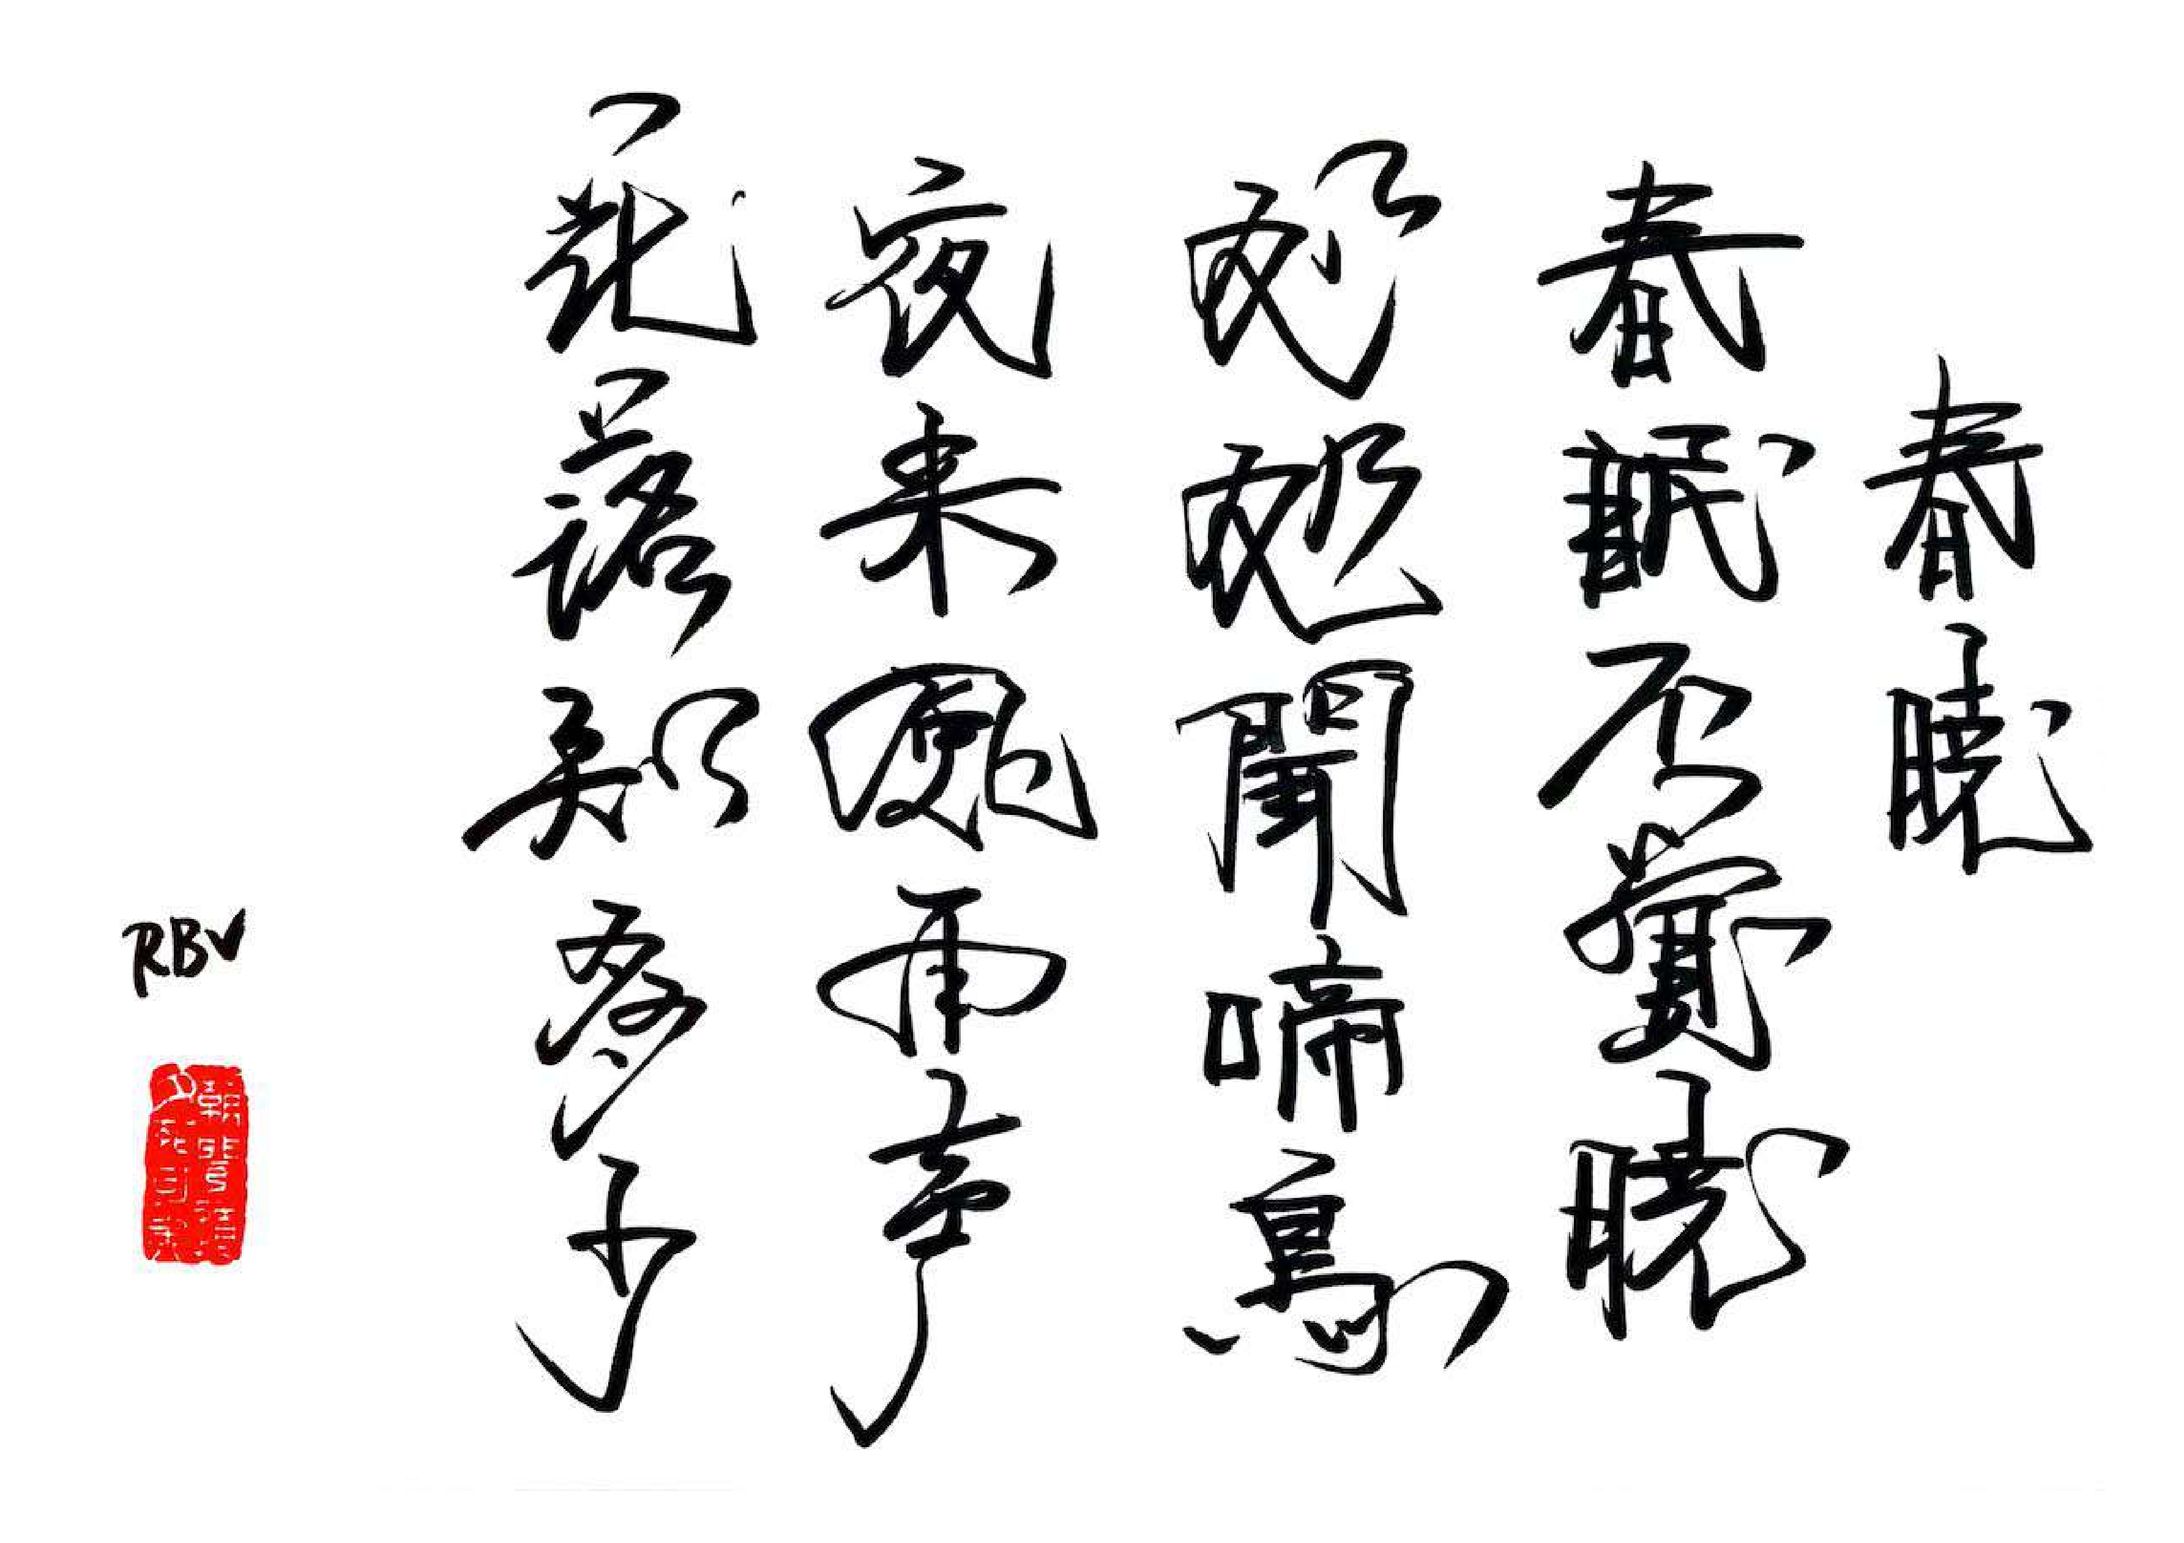 春曉
春眠不覺曉
處處聞啼鳥
夜来風雨声
花落知多少
RBV